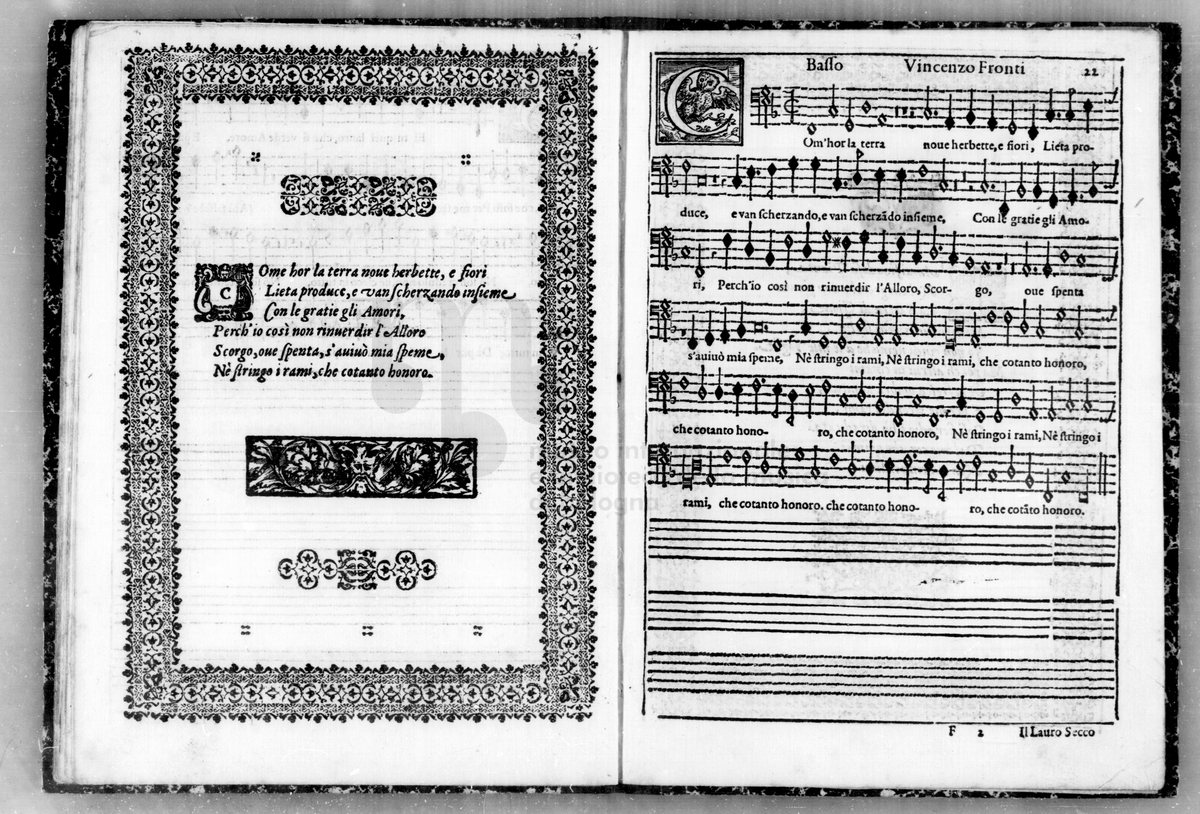 COme hor la terra noue herbette, e fiori
Lieta produce, e van scherzando insieme
Con le gratie gli Amori,
Perch'io così non rinuerdir l'Alloro
Scorgo, oue spenta, s'auiuò mia speme,
Nè stringo i rami, che cotanto honoro.
Basso Vincenzo Fronti 22
COm'hor la terra noue herbette, e fiori, Lieta pro-
duce, e van scherzando, e van scherzãdo insieme, Con le gratie gli Amo-
ri, Perch'io così non rinuerdir l'Alloro, Scor- go, oue spenta
s'auiuò mia speme, Nè stringo i rami, Nè stringo i rami, che cotanto honoro,
che cotanto hono- ro, che cotanto honoro, Nè stringo i rami, Nè stringo i
rami, che cotanto honoro. che cotanto hono- ro, che cotãto honoro.
F 2 Il Lauro Secco